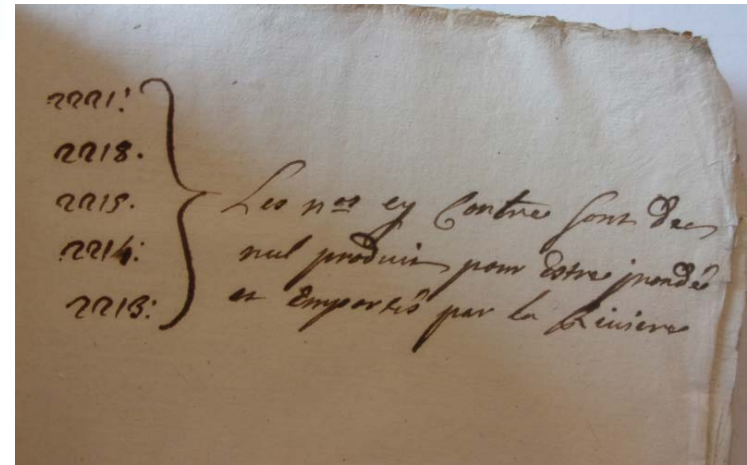 2221.
2218.
2215.
2214.
2213.
Les nos cy Contre sont de
nul produit pour Estre jnondés
et Emportés par la Riviere